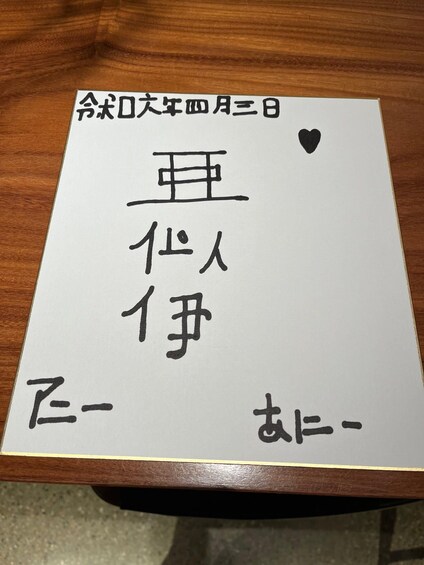 令和六年四月三日
亜
似
伊
アニー
あにー